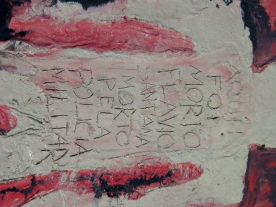 AQUI
FOI
MORTO
FLAVIO
SANTANA
MORTO
PELA
POLICIA
MILITAR